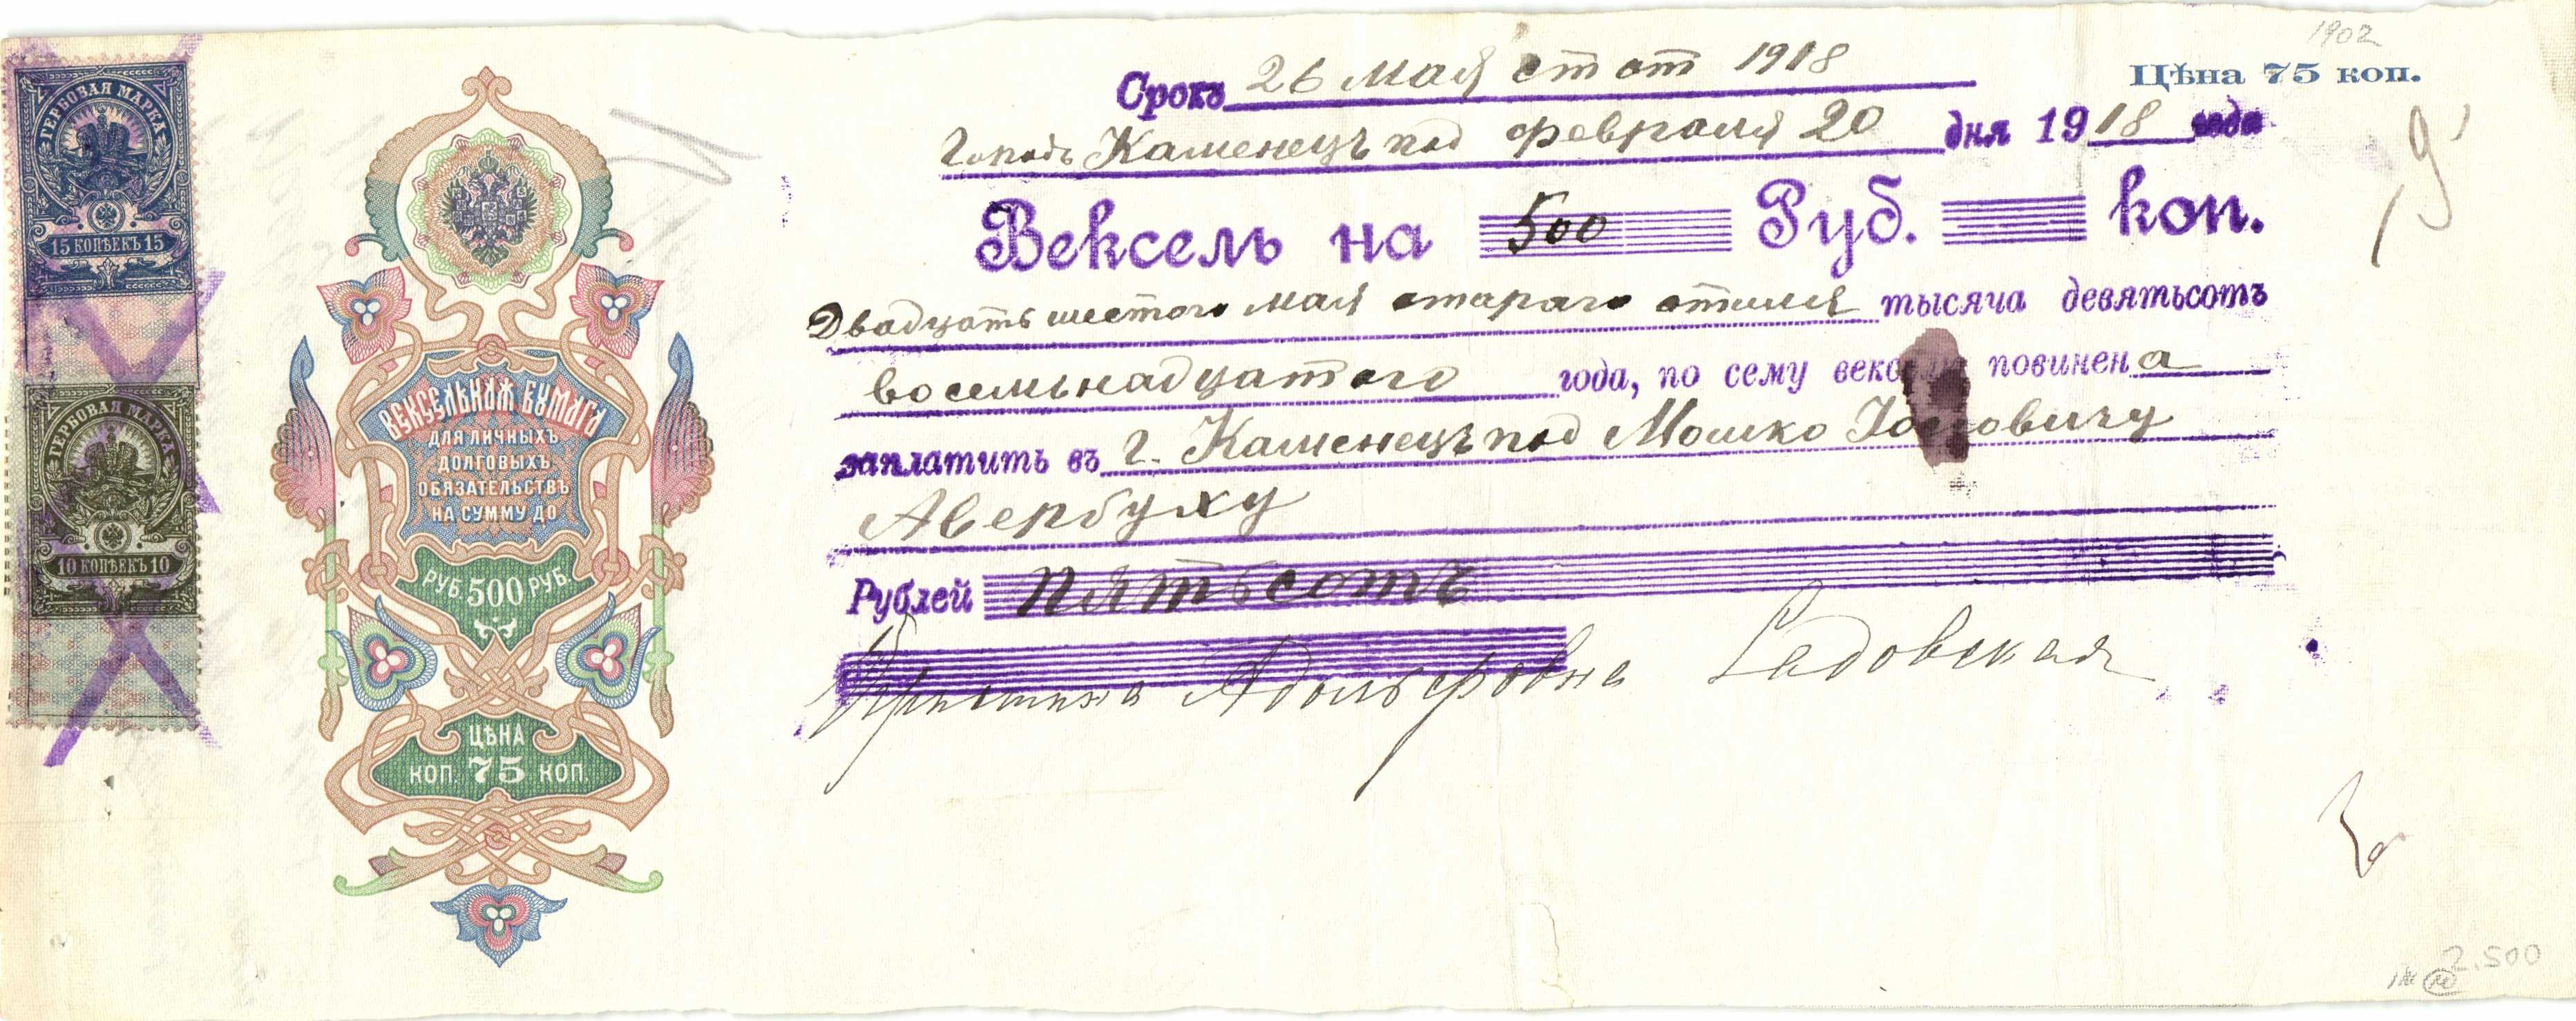 1902
Цѣна 75 коп.
Срокъ 26 Мая ст ст 1918
Городъ Каменецъ под февраля 20 дня 1918 года
Вексель на 500 Руб. коп.
Двадцать шестого мая стараго стиля тысяча девятьсотъ
восемьнадцатого года, по сему векселю повинен а
заплатить въ г. Каменецъ под Мошко Іосіовичу
Авербуху
Рублей пятьсотъ
Адольфовна Садовская
ГЕРБОВАЯ МАРКА
15 КОПѢЕКЪ 15
ГЕРБОВАЯ МАРКА
10 КОПѢЕКЪ 10
ВЕКСЕЛЬНАЯ БУМАГА
ДЛЯ ЛИЧНЫХЪ
ДОЛГОВЫХЪ
ОБЯЗАТЕЛЬСТВЪ
НА СУММУ ДО
РУБ. 500 РУБ.
ЦѢНА
КОП. 75 КОП.
2.500